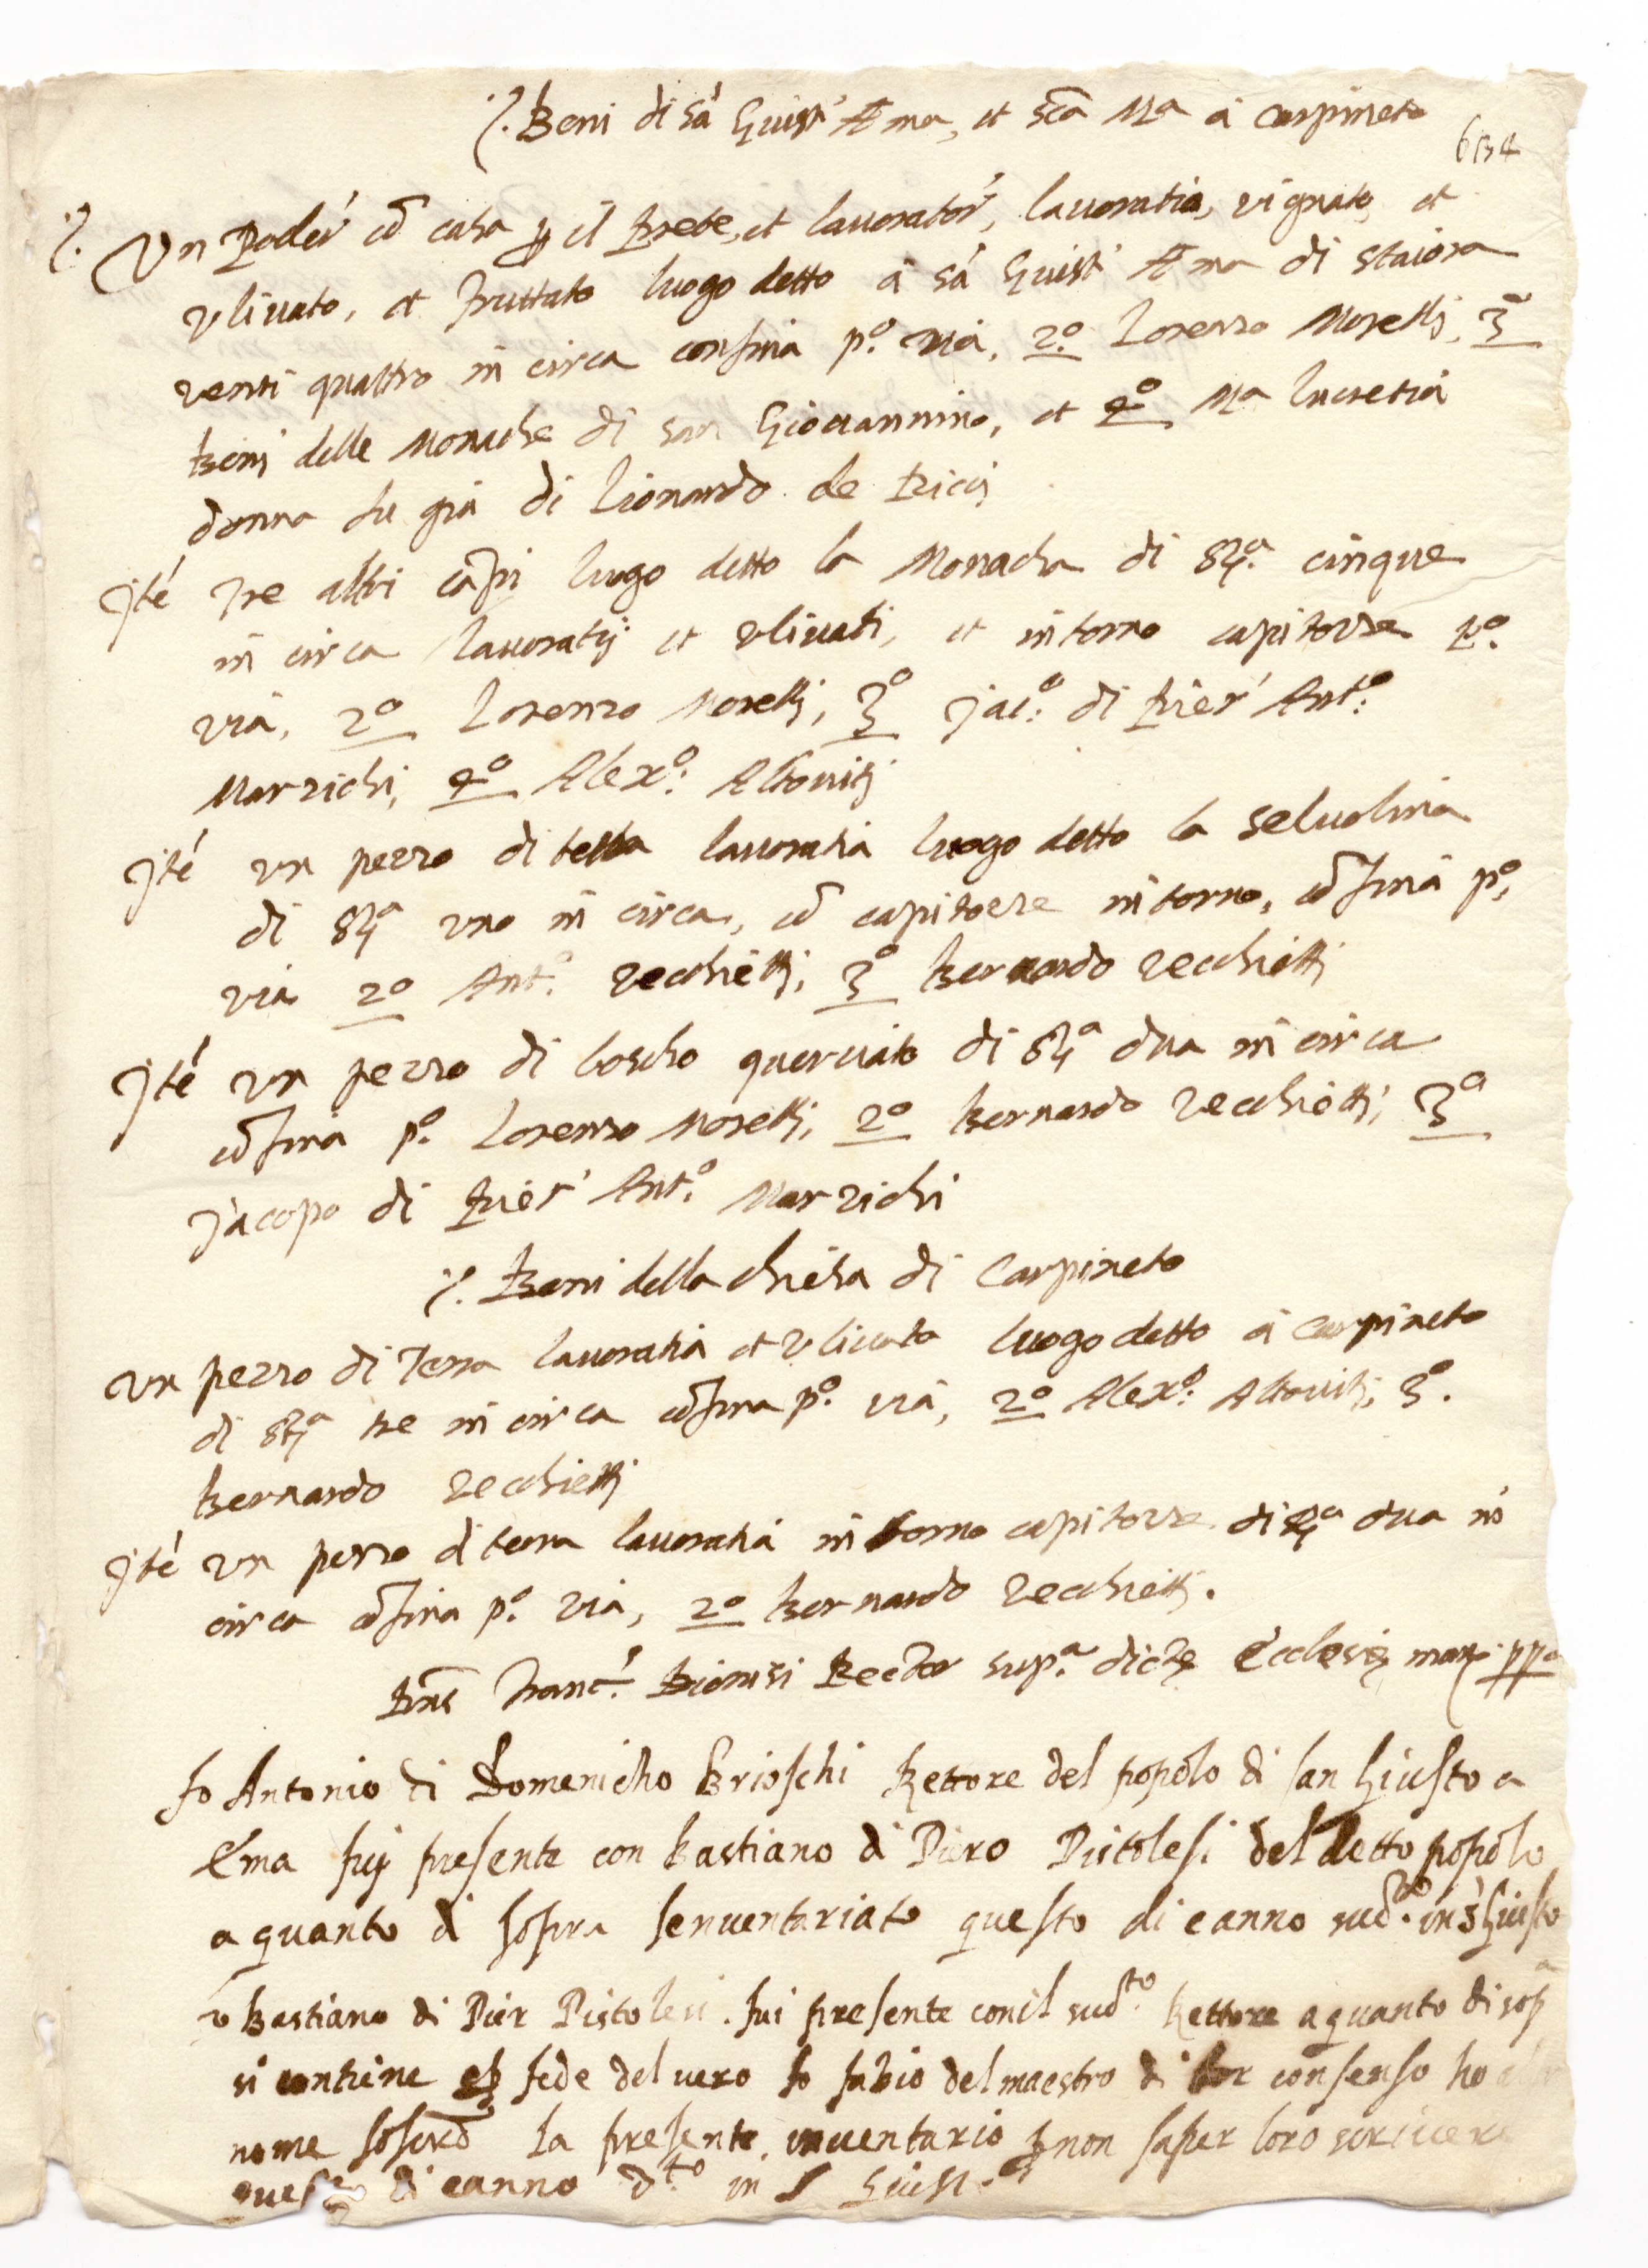 Beni di sã Giustº Ema, et scã Mª a Carpineto
634
Un Poder' cõ casa p il Prete, et lauorator', lauoratia, vignato, et
vliuato, et fruttato luogo detto à sã Giust' Ema di staiora
venti quattro in circa confina pº. via, 2º. Lorenzo Morellj, 3º
Beni delle Monache di san Giouannino, et 4º Mª Lucretia
donna fu gia di Lionardo de Riccj
Ité Tre altri cãpi luogo detto la Monacha di stª. cinque
in circa lauoratij et vliuati, et intorno capitozze pº.
via, 2º Lorenzo Morellj, 3º Jacº: di Pier' Antº:
Marzichi, 4º Alexº: Altouitj
Ité un pezzo di terra lauoratia luogo detto la seluolina
di stª uno in circa, cõ capitozze intorno, cõfina pº,
via 2º Antº: Vecchiettj, 3º Bernardo Vecchiettj
Ité un pezzo di boscho querciato di stª dua in circa
cõfina pº. Lorenzo Morellj, 2º Bernardo Vecchiettj, 3º
Jacopo di Pier' Antº: Marzichi
Beni della chiesa di Carpineto
Un pezzo di Terra lauoratia et vliuata luogo detto à Carpineto
di stª tre in circa cõfina pº. via, 2º Alexº: Altouitj, 3º.
Bernardo Vecchiettj
Ité un pezzo di terra lauoratia intorno capitozze di stª dua in
circa cõfina pº. via, 2º Bernardo Vecchiettj.
Franc.' Rector supª. dictę Ecclesię manu ppª
Io Antonio di Domenicho Brioschi Rettore del popolo di san Giusto a
Ema fuj presente con Bastiano di Piero Pistolesi del detto popolo
a quanto di sopra senuentariato questo di e anno sudto. in s Giusto
Io Bastiano di Pier Pistolesi. fui presente con il sudto. Rettore a quanto di sopª
si contiene et p fede del uero Io fabio del maestro di lor consenso ho
nome soscrõ la presente inuentario p non saper loro scriuere
questo di e anno dto. in S Giusto